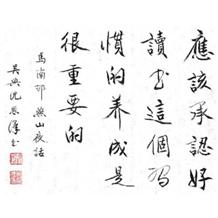 應該承認好
讀書這個習
慣的養成是
很重要的
馬南邨 燕山夜話
吳興沈尹默書